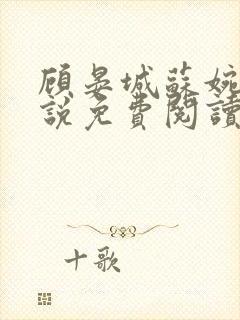 顾晏城蘇婉
説免費閱讀
十歌